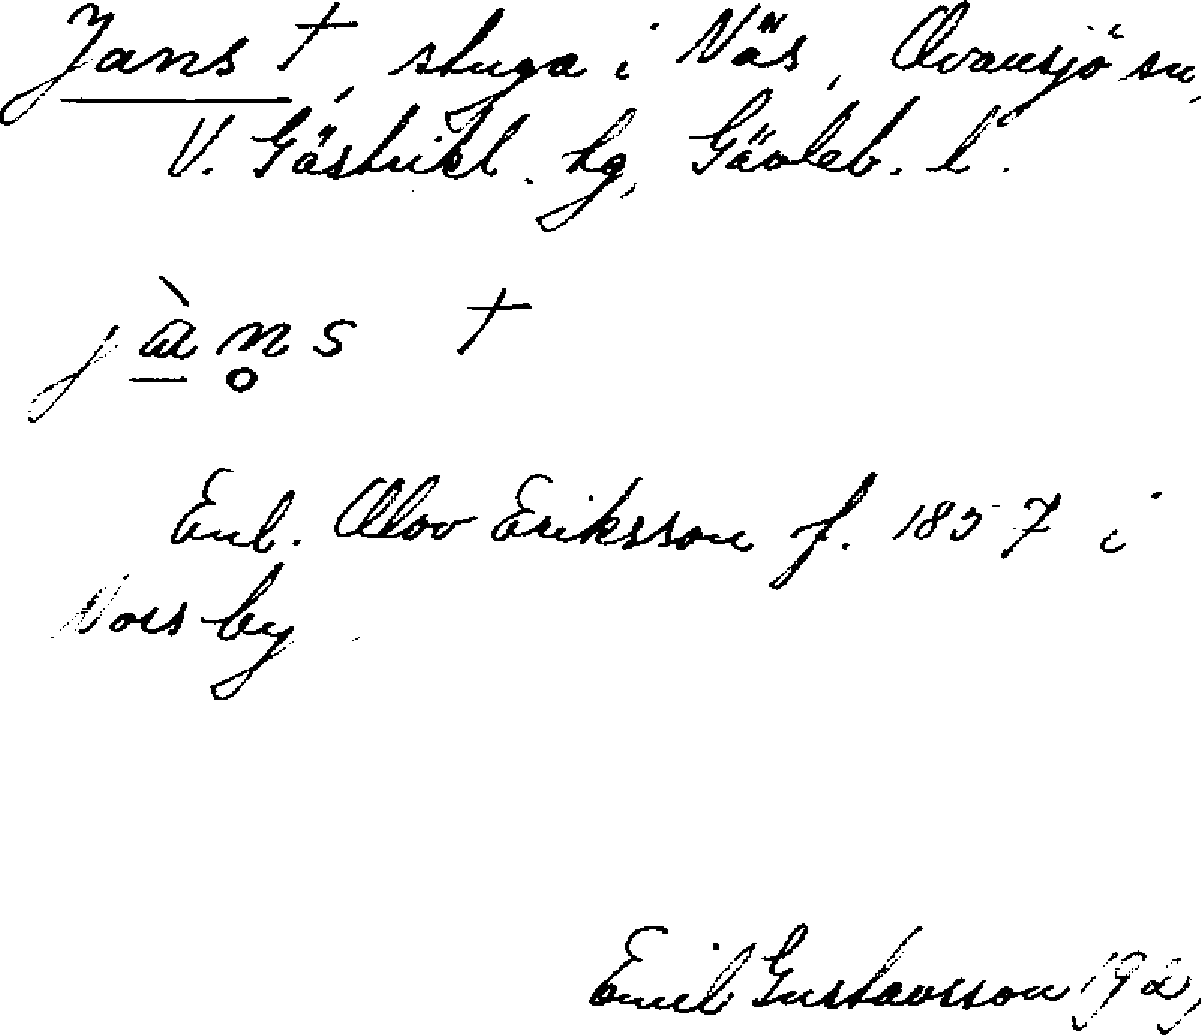 Jans †, stuga i Näs, Ovansjö sn,
V. Gästrikl. tg, Gävleb. l.
jàn̥s †
Enl. Olov Eriksson f. 1857 i
Nors by.
Emil Gustavsson